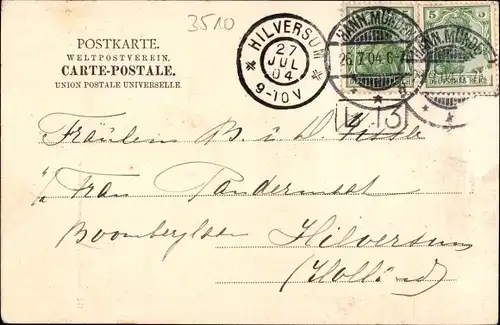 3510
POSTKARTE.
WELTPOSTVEREIN.
CARTE-POSTALE.
UNION POSTALE UNIVERSELLE.
HILVERSUM
27
JUL
04
9-10V
HANN. MÜNDEN
26.7.04.6-7
5 5
13
Fräulein B. u. D.
c/o Frau
Hilversum
(Holland)